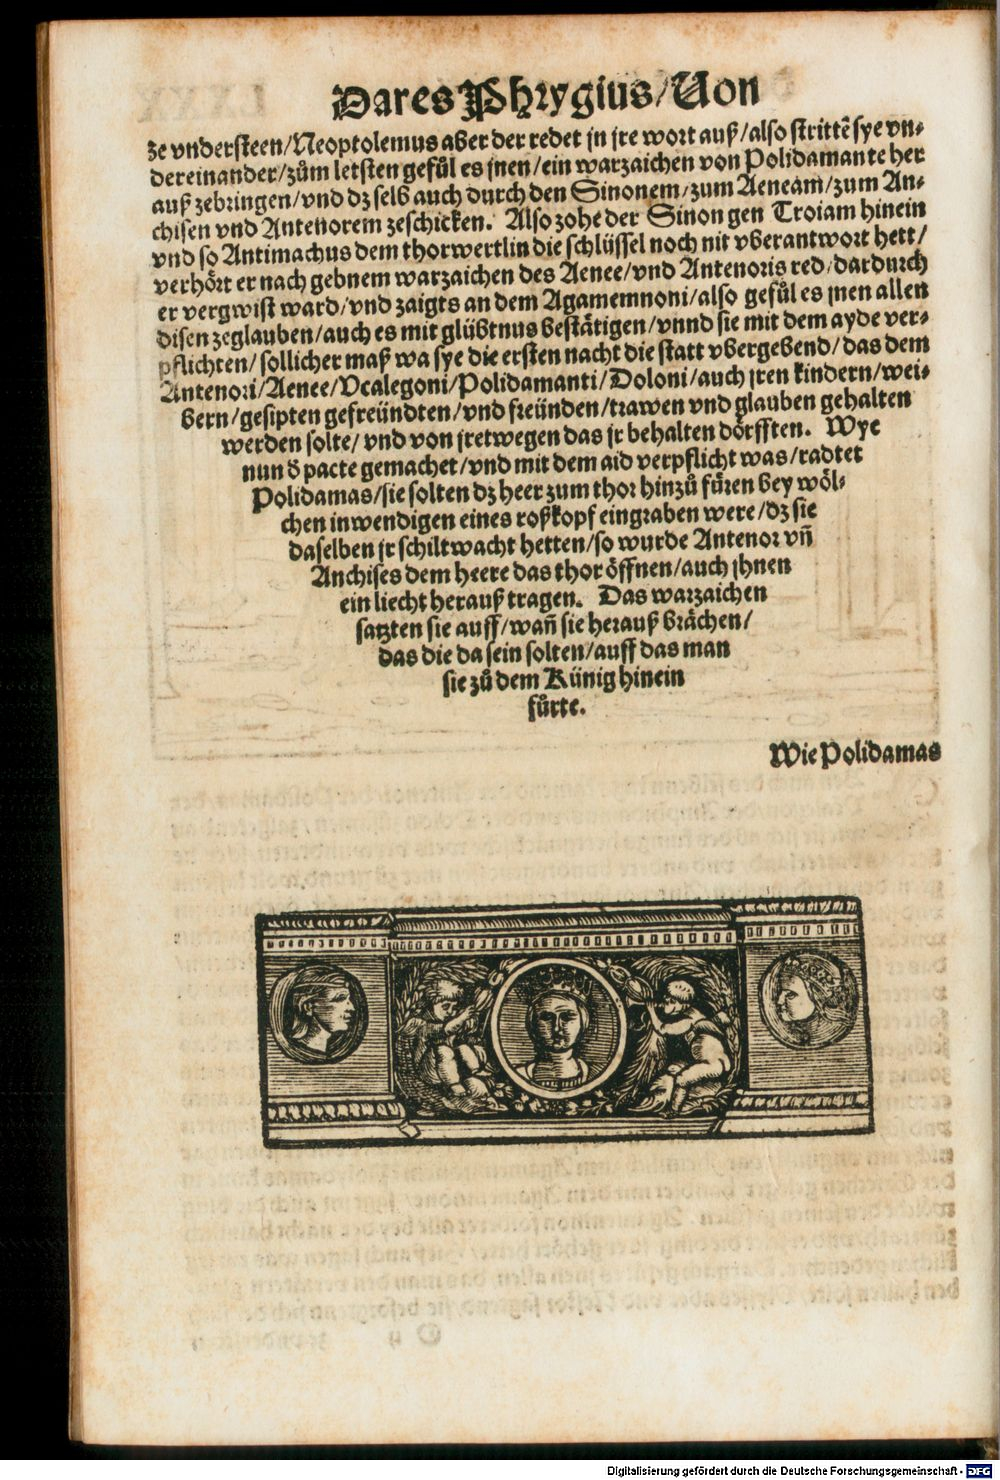 Dares Phrygius/Von
ze vndersteen/Neoptolemus aber der redet jn jre wort auß/also strittẽ sye vn⸗
dereinander/zům letsten gefůl es jnen/ein warzaichen von Polidamante her
auß zebringen/vnd dz selb auch durch den Sinonem/zum Aeneam/zum An⸗
chisen vnd Antenorem zeschicken. Also zohe der Sinon gen Troiam hinein
vnd so Antimachus dem thorwertlin die schlüssel noch nit vberantwort hett/
verhört er nach gebnem warzaichen des Aenee/vnd Antenoris red/dardurch
er vergwist ward/vnd zaigts an dem Agamemnoni/also gefůl es jnen allen
disen zeglauben/auch es mit glübtnus bestätigen/vnnd sie mit dem ayde ver⸗
pflichten/sollicher maß wa sye die ersten nacht die statt vbergebend/das dem
Antenori/Aenee/Vcalegoni/Polidamanti/Doloni/auch jren kindern/wei⸗
bern/gesipten gefreündten/vnd freünden/trawen vnd glauben gehalten
werden solte/vnd von jretwegen das jr behalten dörfften. Wye
nun d̾ pacte gemachet/vnd mit dem aid verpflicht was/radtet
Polidamas/sie solten dz heer zum thor hinzů fůren bey wöl⸗
chen inwendigen eines roßkopf eingraben were/dz sie
daselben jr schiltwacht hetten/so wurde Antenor vñ
Anchises dem heere das thor öffnen/auch jhnen
ein liecht herauß tragen. Das warzaichen
satzten sie auff/wañ sie herauß brächen/
das die da sein solten/auff das man
sie zů dem Künig hinein
fůrte.
Wie Polidamas
Digitalisierung gefördert durch die Deutsche Forschungsgemeinschaft - DFG